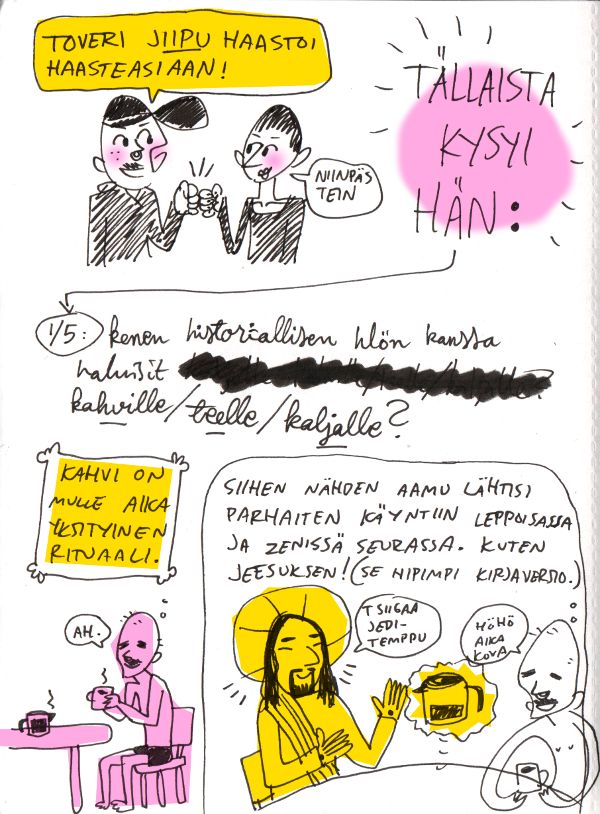 TOVERI JIIPU HAASTOI
HAASTEASIAAN!
NIINPÄS
TEIN
TÄLLAISTA
KYSYI
HÄN:
1/5: kenen historiallisen hlön kanssa
haluisit
kahville/teelle/kaljalle?
KAHVI ON
MULLE AIKA
YKSITYINEN
RITUAALI.
AH.
SIIHEN NÄHDEN AAMU LÄHTISI
PARHAITEN KÄYNTIIN LEPPOISASSA
JA ZENISSÄ SEURASSA. KUTEN
JEESUKSEN! (SE HIPIMPI KIRJAVERSIO.)
TSIIGAA
JEDI-
TEMPPU
HÖHÖ
AIKA
KOVA